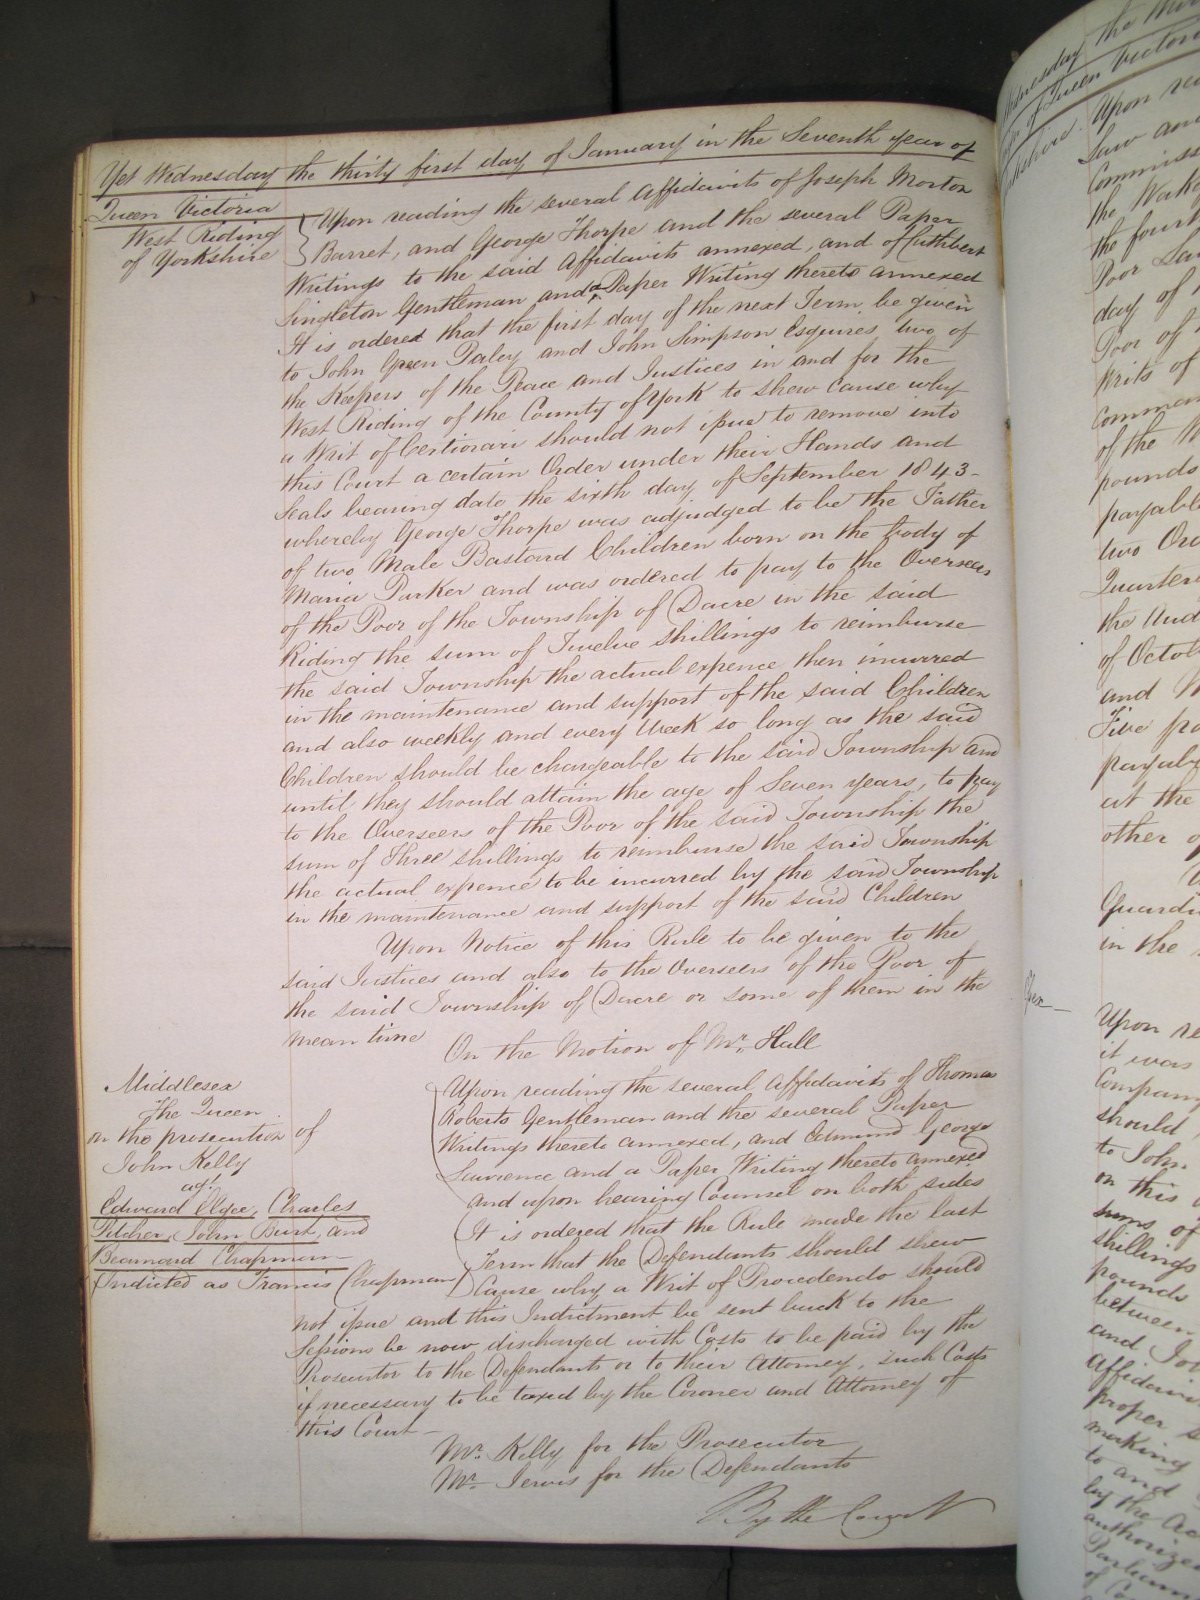 Yet Wednesday the thirty first day of January in the Seventh year of
Queen Victoria
West Riding
of Yorkshire
Upon reading the several Affidavits of Joseph Morton
Barret, and George Thorpe and the several Paper
Writings to the said Affidavits annexed, and of Cuthbert
Singleton Gentleman and a Paper Writing thereto annexed
It is ordered that the first day of the next Term be given
to John Green Paley and John Simpson Esquires, two of
the Keepers of the Peace and Justices in and for the
West Riding of the County of York to shew cause why
a Writ of Certiorari should not issue to remove into
this Court a certain Order under their Hands and
Seals bearing date the sixth day of September 1843
whereby George Thorpe was adjudged to be the Father
of two Male Bastard Children born on the body of
Maria Parker and was ordered to pay to the Overseers
of the Poor of the Township of Dacre in the said
Riding the sum of Twelve shillings to reimburse
the said Township the actual expence then incurred
in the maintenance and support of the said Children
and also weekly and every Week so long as the said
Children should be chargeable to the said Township and
until they should attain the age of Seven years, to pay
to the Overseers of the Poor of the said Township the
sum of Three shillings to reimburse the said Township
the actual expence to be incurred by the said Township
in the maintenance and support of the said Children
Upon Notice of this Rule to be given to the
said Justices and also to the Overseers of the Poor of
the said Township of Dacre or some of them in the
mean time
On the Motion of Mr. Hall
Middlesex
The Queen
on the prosecution of
John Kelly
agt
Edward Elgee, Charles
Pilcher, John Burt, and
Bearnard Chapman
Indicted as Francis Chapman
Upon reading the several Affidavits of Thomas
Roberts Gentleman and the several Paper
Writings thereto annexed, and Edmund George
Lawrence and a Paper Writing thereto annexed
and upon hearing Counsel on both sides
It is ordered that the Rule made the last
Term that the Defendants should shew
Cause why a Writ of Procedendo should
not issue and this Indictment be sent back to the
Sessions be now discharged with Costs to be paid by the
Prosecutor to the Defendants or to their Attorney, such Costs
if necessary to be taxed by the Coroner and Attorney of
this Court
Mr. Kelly for the Prosecutor
Mr. Jervis for the Defendants
By the Court
Wednesday the
of Queen Victoria
Upon
Law and
the
the fourth
Poor Law
day of
Poor of
Writs of
of the
pounds
two
the
of October
and
Five
at the
other
in the
Upon
it was
Company
should
to John
on this
sums of
shillings
pounds
between
and
proper
making
to and
by the
of